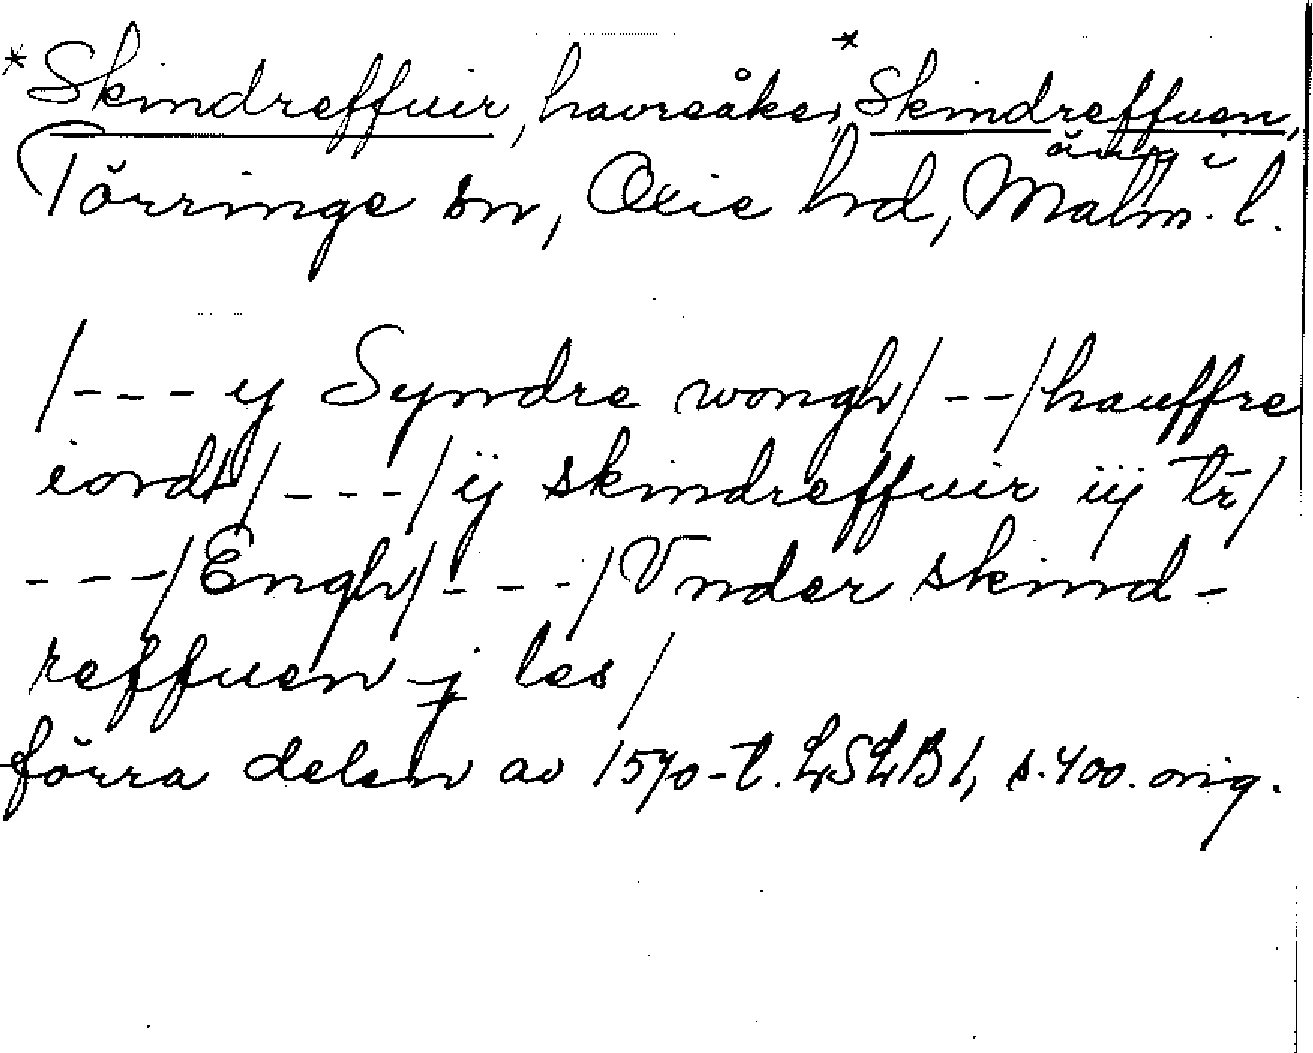 *Skindreffuir, havreåker, *Skindreffuen,
äng i
Törringe sn, Oxie hd, Malm. l.
/--- y Syndre wongh/--/hauffre
iordt/---/ ij skindreffuir iij tr/
---/Engh/---/Vnder skind-
reffuen j les/
förra delen av 1570-t. LSLB 1, s. 400. orig.